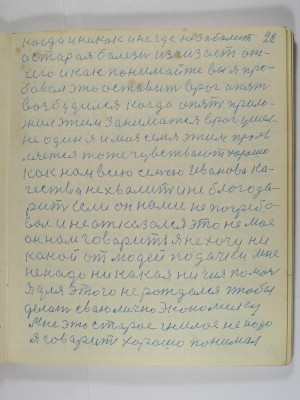 когда и никак и негде не заболит 22
а старая болезн изчизает от-
чего и как понимайте вы я про-
бовал это оставит врог опят
возбудился когда опят прило-
жил этим заниматся врог ушол
не один я и моя семя этим прояв
ляется тоже чувствают хорошо
как нам всею семею Иванова ка-
чества нехвалит и не благода-
рит если он нами не погребо-
вал и не отказался это не мое
он нам говарит я не хочу ни
какой от людей подачки мне
ненадо ни какая ни чия помощ
я для этого не рождался чтобы
делат сваю лично экономику
Мне это старое гнилое не надо
я говарит хорошо понимал